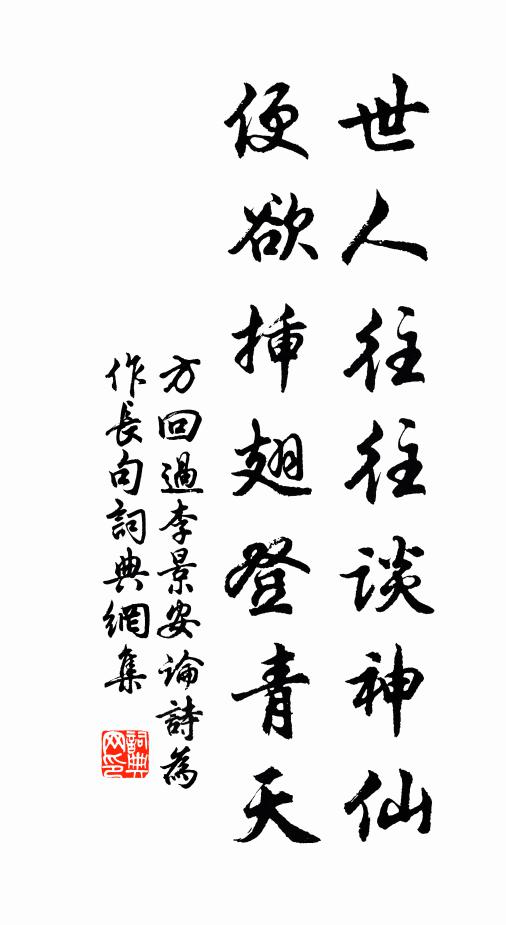 世人往往談神仙
便欲插翅登青天
方回過李景安論詩為
作長句詞典網集
詞典
网印